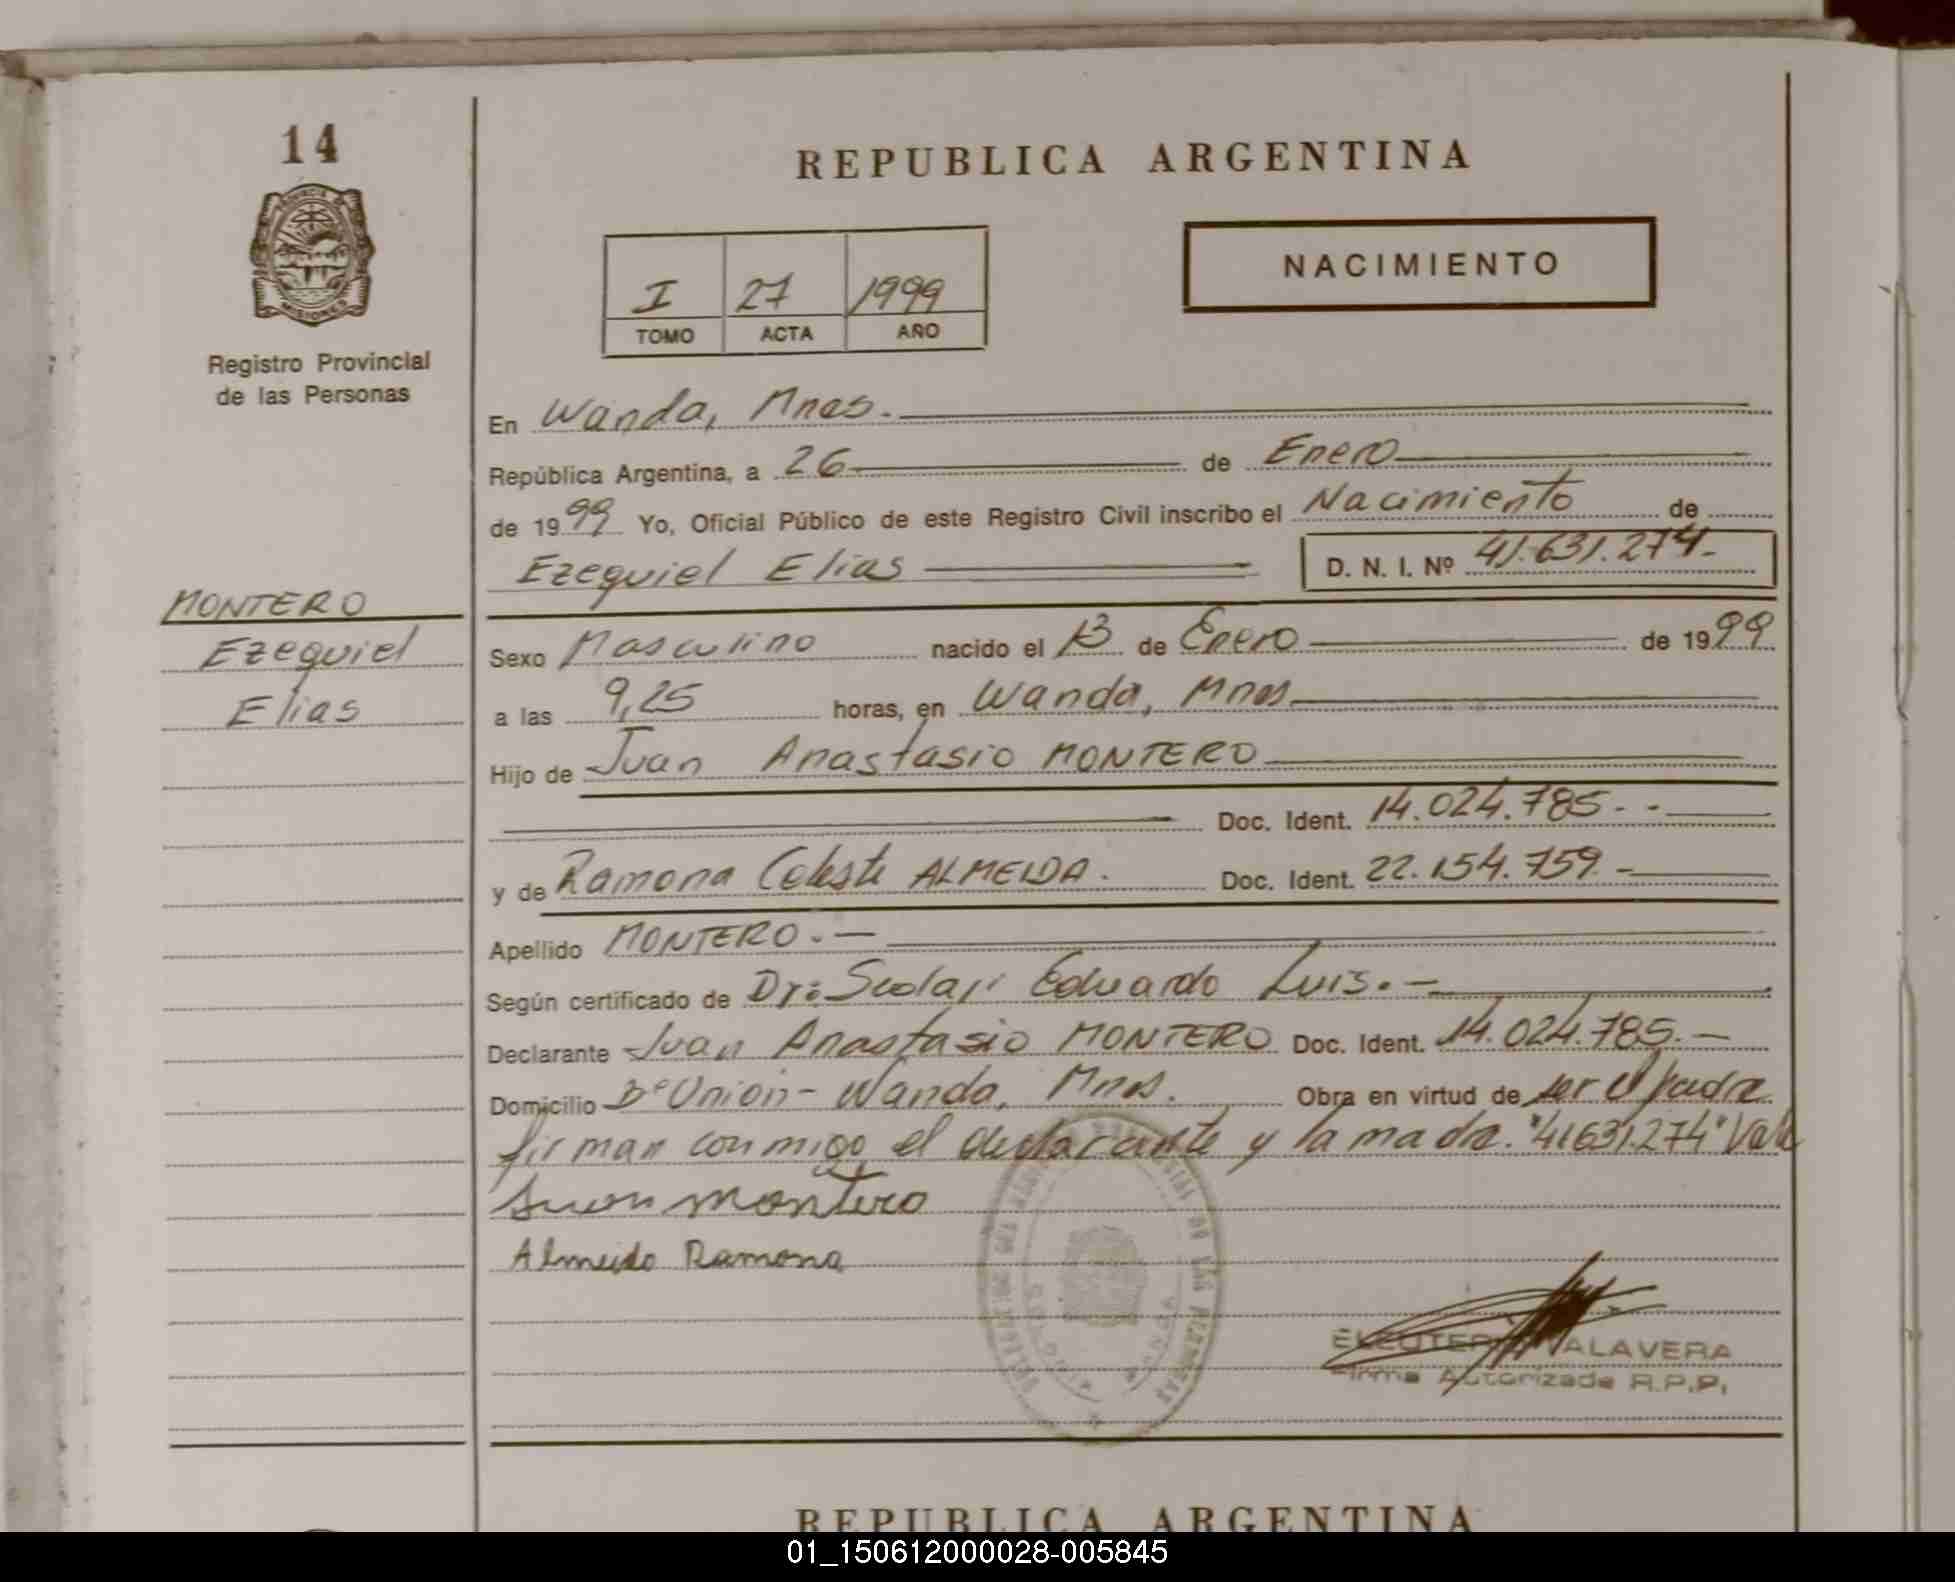 14
REPUBLICA ARGENTINA
PROVINCIA DE
MISIONES
Registro Provincial
de las Personas
NACIMIENTO
I 27 1999
TOMO ACTA AÑO
En Wanda, Mnes.
República Argentina, a 26 de Enero
de 1999 Yo, Oficial Público de este Registro Civil inscribo el Nacimiento de
Ezequiel Elias D. N. I. Nº 41.631.274.-
MONTERO
Ezequiel
Elias
Sexo Masculino nacido el 13 de Enero de 1999
a las 9,25 horas, en Wanda, Mnes
Hijo de Juan Anastasio MONTERO
Doc. Ident. 14.024.785.-
y de Ramona Celeste ALMEIDA. Doc. Ident. 22.154.759.-
Apellido MONTERO.-
Según certificado de Dr: Eduardo Luis.-
Declarante Juan Anastasio MONTERO Doc. Ident. 14.024.785.-
Domicilio Bº Unión - Wanda, Mnes. Obra en virtud de ser el padre
firman conmigo el declarante y la madre. "41631.274" Vale
Juan Montero
Almeida Ramona
TALAVERA
Firma Autorizada R.P.P.
REPUBLICA ARGENTINA
01_150612000028-005845